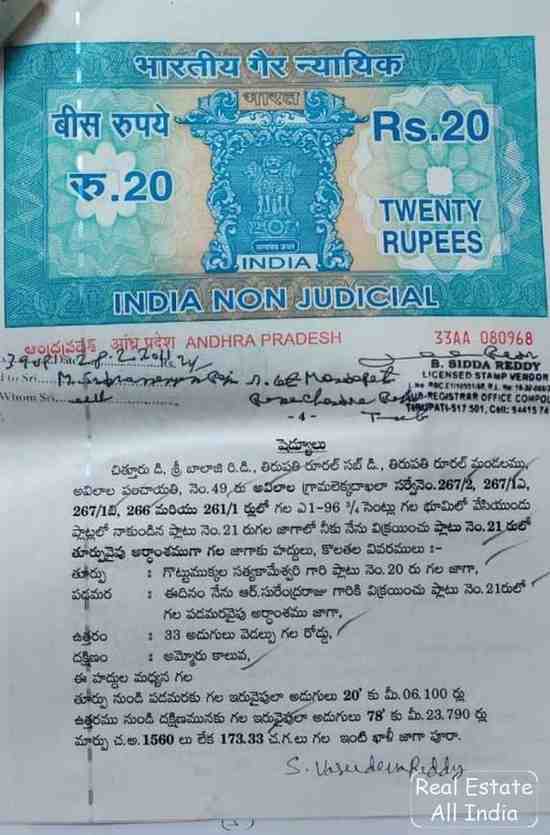 भारतीय गैर न्यायिक
भारत
बीस रुपये
Rs.20
रु.20
TWENTY
RUPEES
सत्यमेव जयते
INDIA
INDIA NON JUDICIAL
ఆంధ్రప్రదేశ్ आंध्र प्रदेश ANDHRA PRADESH
33AA 080968
Date 28.2.2011
B. SIDDA REDDY
LICENSED STAMP VENDOR
SUB-REGISTRAR OFFICE COMPOU
TIRUPATI-517 501, Cell: 94415 74
To Sri
Whom Sri
- 4 -
షెడ్యూలు
చిత్తూరు డి, శ్రీ బాలాజి రి.డి., తిరుపతి రూరల్ సబ్ డి., తిరుపతి రూరల్ మండలము,
అవిలాల పంచాయతి, నెం.49 రు అవిలాల గ్రామలెక్కదాఖలా సర్వేనెం.267/2, 267/1ఏ,
267/1బి, 266 మరియు 261/1 ర్లులో గల ఎ1-96 ¾ సెంట్లు గల భూమిలో వేసియుండు
ప్లాట్లలో నాకుండిన ప్లాటు నెం.21 రుగల జాగాలో నీకు నేను విక్రయించు ప్లాటు నెం.21 రులో
తూర్పువైపు అర్థాంశముగా గల జాగాకు హద్దులు, కొలతల వివరములు :-
తూర్పు : గొట్టుముక్కల సత్యకామేశ్వరి గారి ప్లాటు నెం.20 రు గల జాగా,
పడమర : ఈదినం నేను ఆర్.సురేంద్రరాజు గారికి విక్రయించు ప్లాటు నెం.21రులో
గల పడమరవైపు అర్థాంశము జాగా,
ఉత్తరం : 33 అడుగులు వెడల్పు గల రోడ్డు,
దక్షిణం : అమ్మోరు కాలువ,
ఈ హద్దుల మధ్యన గల
తూర్పు నుండి పడమరకు గల ఇరువైపులా అడుగులు 20' కు మీ.06.100 ర్లు
ఉత్తరము నుండి దక్షిణమునకు గల ఇరువైపులా అడుగులు 78' కు మీ.23.790 ర్లు
మార్పు చ.అ.1560 లు లేక 173.33 చ.గ.లు గల ఇంటి ఖాళీ జాగా పూరా.
S. Vasudeva Reddy
Real Estate
All India